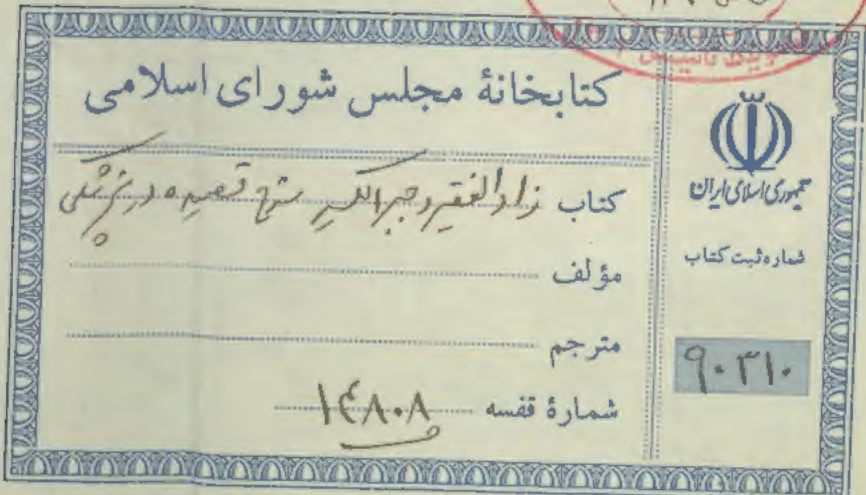 کتابخانهٔ مجلس شورای اسلامی
کتاب زاد الفقیر و جبر الکسیر شرح قصیده در پزشکی
مؤلف
مترجم
شمارهٔ قفسه ۱۴۸۰۸
جمهوری اسلامی ایران
شماره ثبت کتاب
۹۰۳۱۰